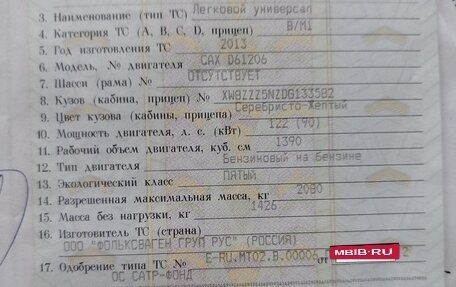 3. Наименование (тип ТС) Легковой универсал
4. Категория ТС (А, В, С, D, прицеп) В/М1
5. Год изготовления ТС 2013
6. Модель, № двигателя CAX D61206
7. Шасси (рама) № ОТСУТСТВУЕТ
8. Кузов (кабина, прицеп) № XW8ZZZ5NZDG133582
9. Цвет кузова (кабины, прицепа) Серебристо-желтый
10. Мощность двигателя, л. с. (кВт) 122 (90)
11. Рабочий объем двигателя, куб. см 1390
12. Тип двигателя Бензиновый на бензине
13. Экологический класс ПЯТЫЙ
14. Разрешенная максимальная масса, кг 2080
15. Масса без нагрузки, кг 1426
16. Изготовитель ТС (страна)
ООО "ФОЛЬКСВАГЕН ГРУП РУС" (РОССИЯ)
17. Одобрение типа ТС № E-RU.МТ02.В.00006 от 2
MBIB.RU
ОС САТР-ФОНД